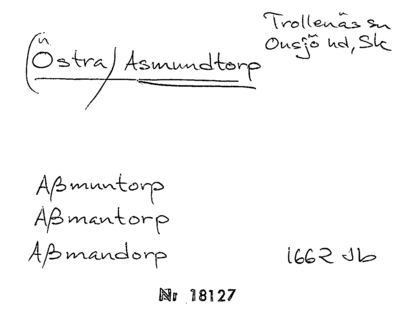 (Östra) Asmundtorp
Trollenäs sn
Onsjö hd, Sk
Aßmuntorp
Aßmantorp
Aßmandorp 1662 Jb
Nr 18127